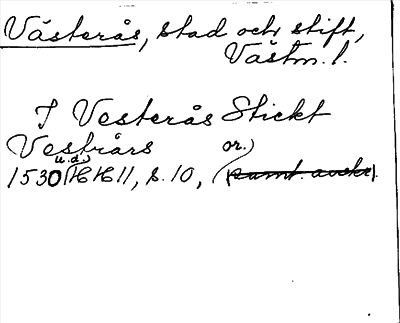 Västerås, stad och stift,
Västm. l.
I Vesterås Stickt
Vestrårs or.)
1530 (u.d.) HH 11, s. 10, (samt. avskr.).